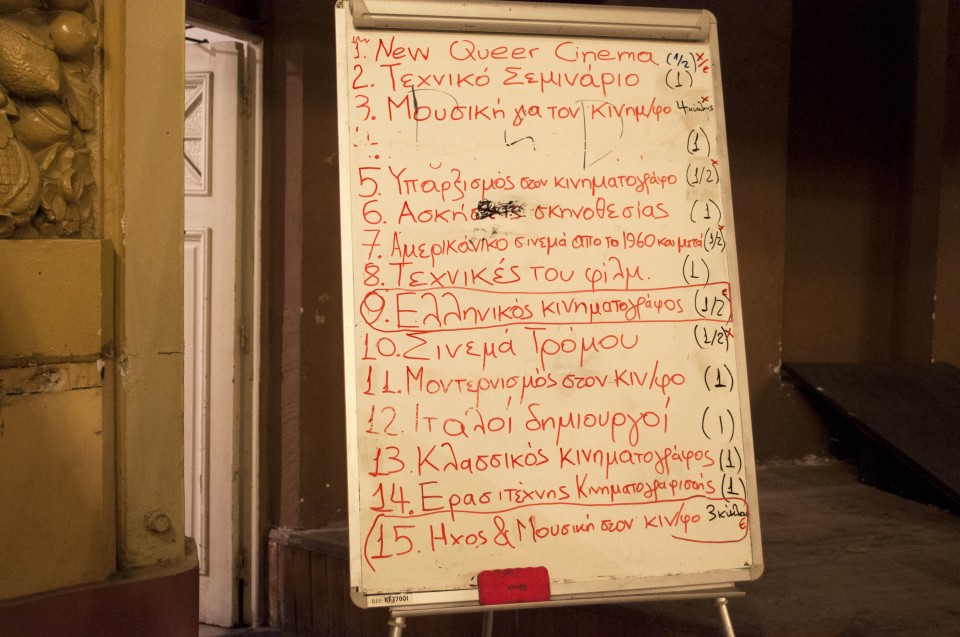 1. New Queer Cinema (1/2) x/ε
2. Τεχνικό Σεμινάριο (1)
3. Μουσική για τον κινημ/φο 4 x
(1)
5. Υπαρξισμός στον κινηματογράφο (1/2) x
6. Ασκήσεις σκηνοθεσίας (1)
7. Αμερικάνικο σινεμά από το 1960 και μετά (1/2) x
8. Τεχνικές του φιλμ. (1)
9. Ελληνικός κινηματογράφος (1/2) ε
10. Σινεμά Τρόμου (1/2) x
11. Μοντερνισμός στον κιν/φο (1)
12. Ιταλοί δημιουργοί (1)
13. Κλασσικός κινηματογράφος (1)
14. Ερασιτέχνης Κινηματογραφιστής (1)
15. Ήχος & Μουσική στον κιν/φο 3 ε
REF. KF37001